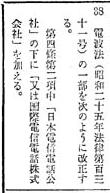 38　電波法（昭和二十五年法律第百三
十一号）の一部を次のように改正す
る。
第四條第二項中「日本電信電話公
社」の下に「又は国際電信電話株式
会社」を加える。